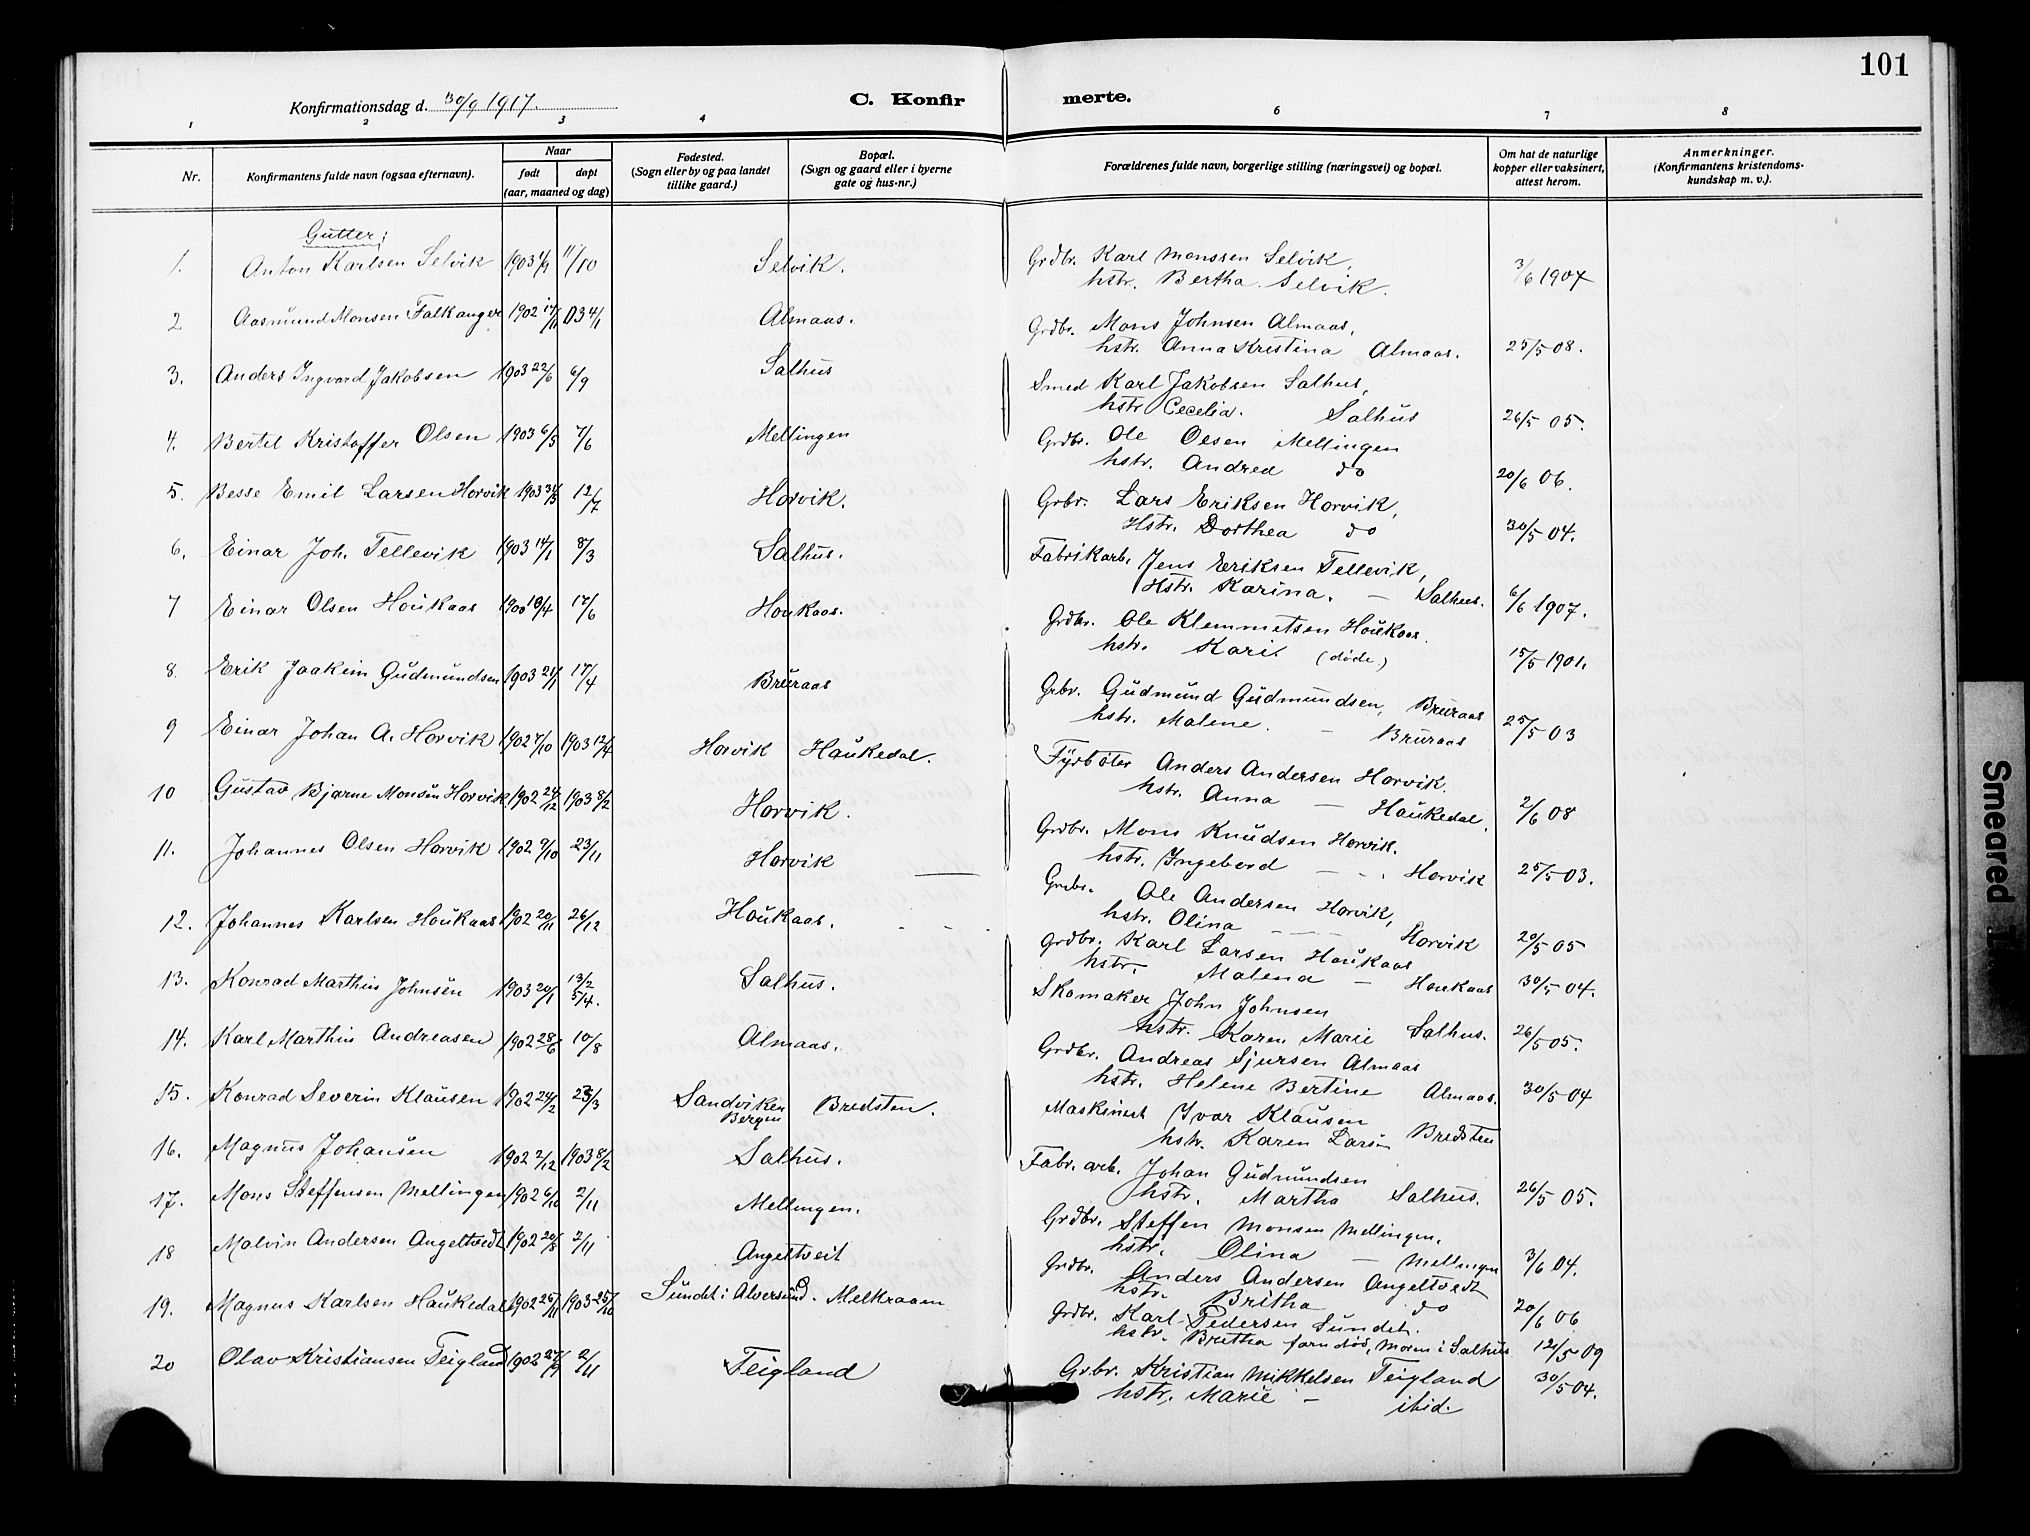 101
Konfirmationsdag d. 30/9 1917.
C. Konfir merte.
1 2 3 4 6 7 8
Nr.
Konfirmantens fulde navn (ogsaa efternavn).
Naar
født døpt
(aar, maaned og dag)
Fødested.
(Sogn eller by og paa landet
tillike gaard.)
Bopæl.
(Sogn og gaard eller i byerne
gate og hus-nr.)
Forældrenes fulde navn, borgerlige stilling (næringsvei) og bopæl.
Om hat de naturlige
kopper eller vaksinert,
attest herom.
Anmerkninger.
(Konfirmantens kristendoms-
kundskap m. v.).
Gutter:
1. Anton Karlsen Selvik 1903 4/9 11/10 Selvik. Grdbr. Karl Monssen Selvik,
hstr. Bertha Selvik. 3/6 1907
2 Aasmund Monsen Falkanger 1902 17/11 03 4/1 Almaas. Grdbr. Mons Johnsen Almaas,
hstr. Anna Kristina Almaas. 25/5 08.
3. Anders Ingvard Jakobsen 1903 22/6 6/9 Salhus Smed Karl Jakobsen Salhus,
hstr Cecelia. Salhus 26/5 05.
4. Bertel Kristoffer Olsen 1903 6/5 7/6 Mellingen Grdbr. Ole Olsen Mellingen
hstr. Andrea do 20/6 06.
5. Besse Emil Larsen Horvik 1903 31/5 12/7 Horvik. Grbr. Lars Eriksen Horvik,
Hstr. Dorthea do 30/5 04.
6. Einar Joh. Tellevik 1903 14/1 8/3 Salhus. Fabrikarb. Jens Eriksen Tellevik,
Hstr. Karina. — Salhus. 6/6 1907.
7 Einar Olsen Houkaas 1900 18/4 17/6 Houkaas. Grdbr. Ole Klemmetsen Houkaas.
hstr. Kari (døde) 15/5 1901.
8. Erik Joakim Gudmundsen 1903 21/1 17/4 Bruraas Grbr. Gudmund Gudmundsen, Bruraas
hstr. Malene. — Bruraas 25/5 03
9 Einar Johan A. Horvik 1902 7/10 1903 12/4 Horvik Haukedal. Fyrbøter Anders Andersen Horvik.
hstr. Anna — Haukedal. 2/6 08
10 Gustav Bjarne Monsen Horvik 1902 24/12 1903 8/2 Horvik. Grdbr. Mons Knudsen Horvik.
hstr. Ingebord — Horvik 25/5 03.
11. Johannes Olsen Horvik 1902 9/10 23/11 Horvik Grdbr. Ole Andersen Horvik,
hstr. Olina — Horvik 20/5 05
12. Johannes Karlsen Houkaas 1902 20/11 26/12 Houkaas. Grdbr. Karl Larsen Haukaas
hstr. Malena — Houkaas 30/5 04.
13. Konrad Marthin Johnsen 1903 20/1 13/2 5/4. Salhus. Skomaker John Johnsen
hstr. Karen Marie Salhus. 26/5 05.
14. Karl Marthin Andreasen 1902 28/6 10/8 Almaas. Grdbr. Andreas Sjursen Almaas
hstr. Helene Bertine Almaas. 30/5 04
15. Konrad Severin Klausen 1902 24/2 23/3 Sandviken Bergen Bredsten. Maskinist Ivar Klausen
hstr. Karen Larsn Bredsten
16. Magnus Johansen 1902 2/12 1903 8/2 Salhus. Fabr. arb. Johan Gudmundsen
hstr. Martha Salhus. 26/5 05.
17. Mons Steffensen Mellingen 1902 6/10 2/11 Mellingen. Grdbr. Steffen Monsen Mellingen.
hstr. Olina — Mellingen 3/6 04.
18 Malvin Andersen Angeltvedt 1902 20/8 2/11 Angeltveit Grdbr. Anders Andersen Angeltvedt
hstr. Britha do 20/6 06
19. Magnus Karlsen Haukedal 1902 26/11 1903 25/10 Sundet i Alversund. Melkraaen Grdbr. Karl Pedersen Sundet.
hstr. Bretha farn død, Morn i Salhus 12/5 09
20 Olav Kristiansen Teigland 1902 27/9 2/11 Teigland Grbr. Kristian Mikkelsen Teigland
hstr. Marie — ibid. 30/5 04.
Smeared